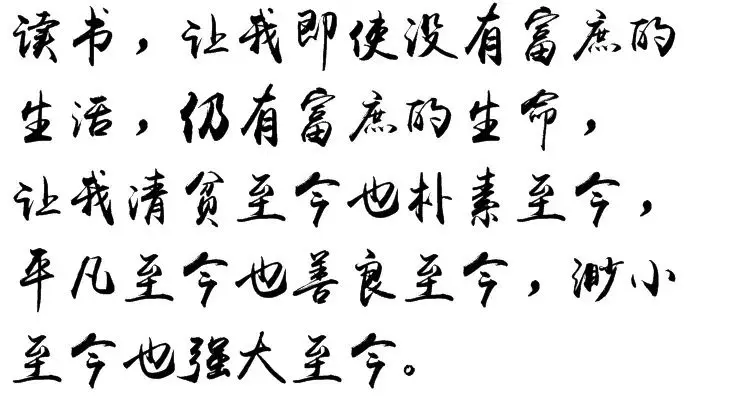 读书，让我即使没有富庶的
生活，仍有富庶的生命，
让我清贫至今也朴素至今，
平凡至今也善良至今，渺小
至今也强大至今。